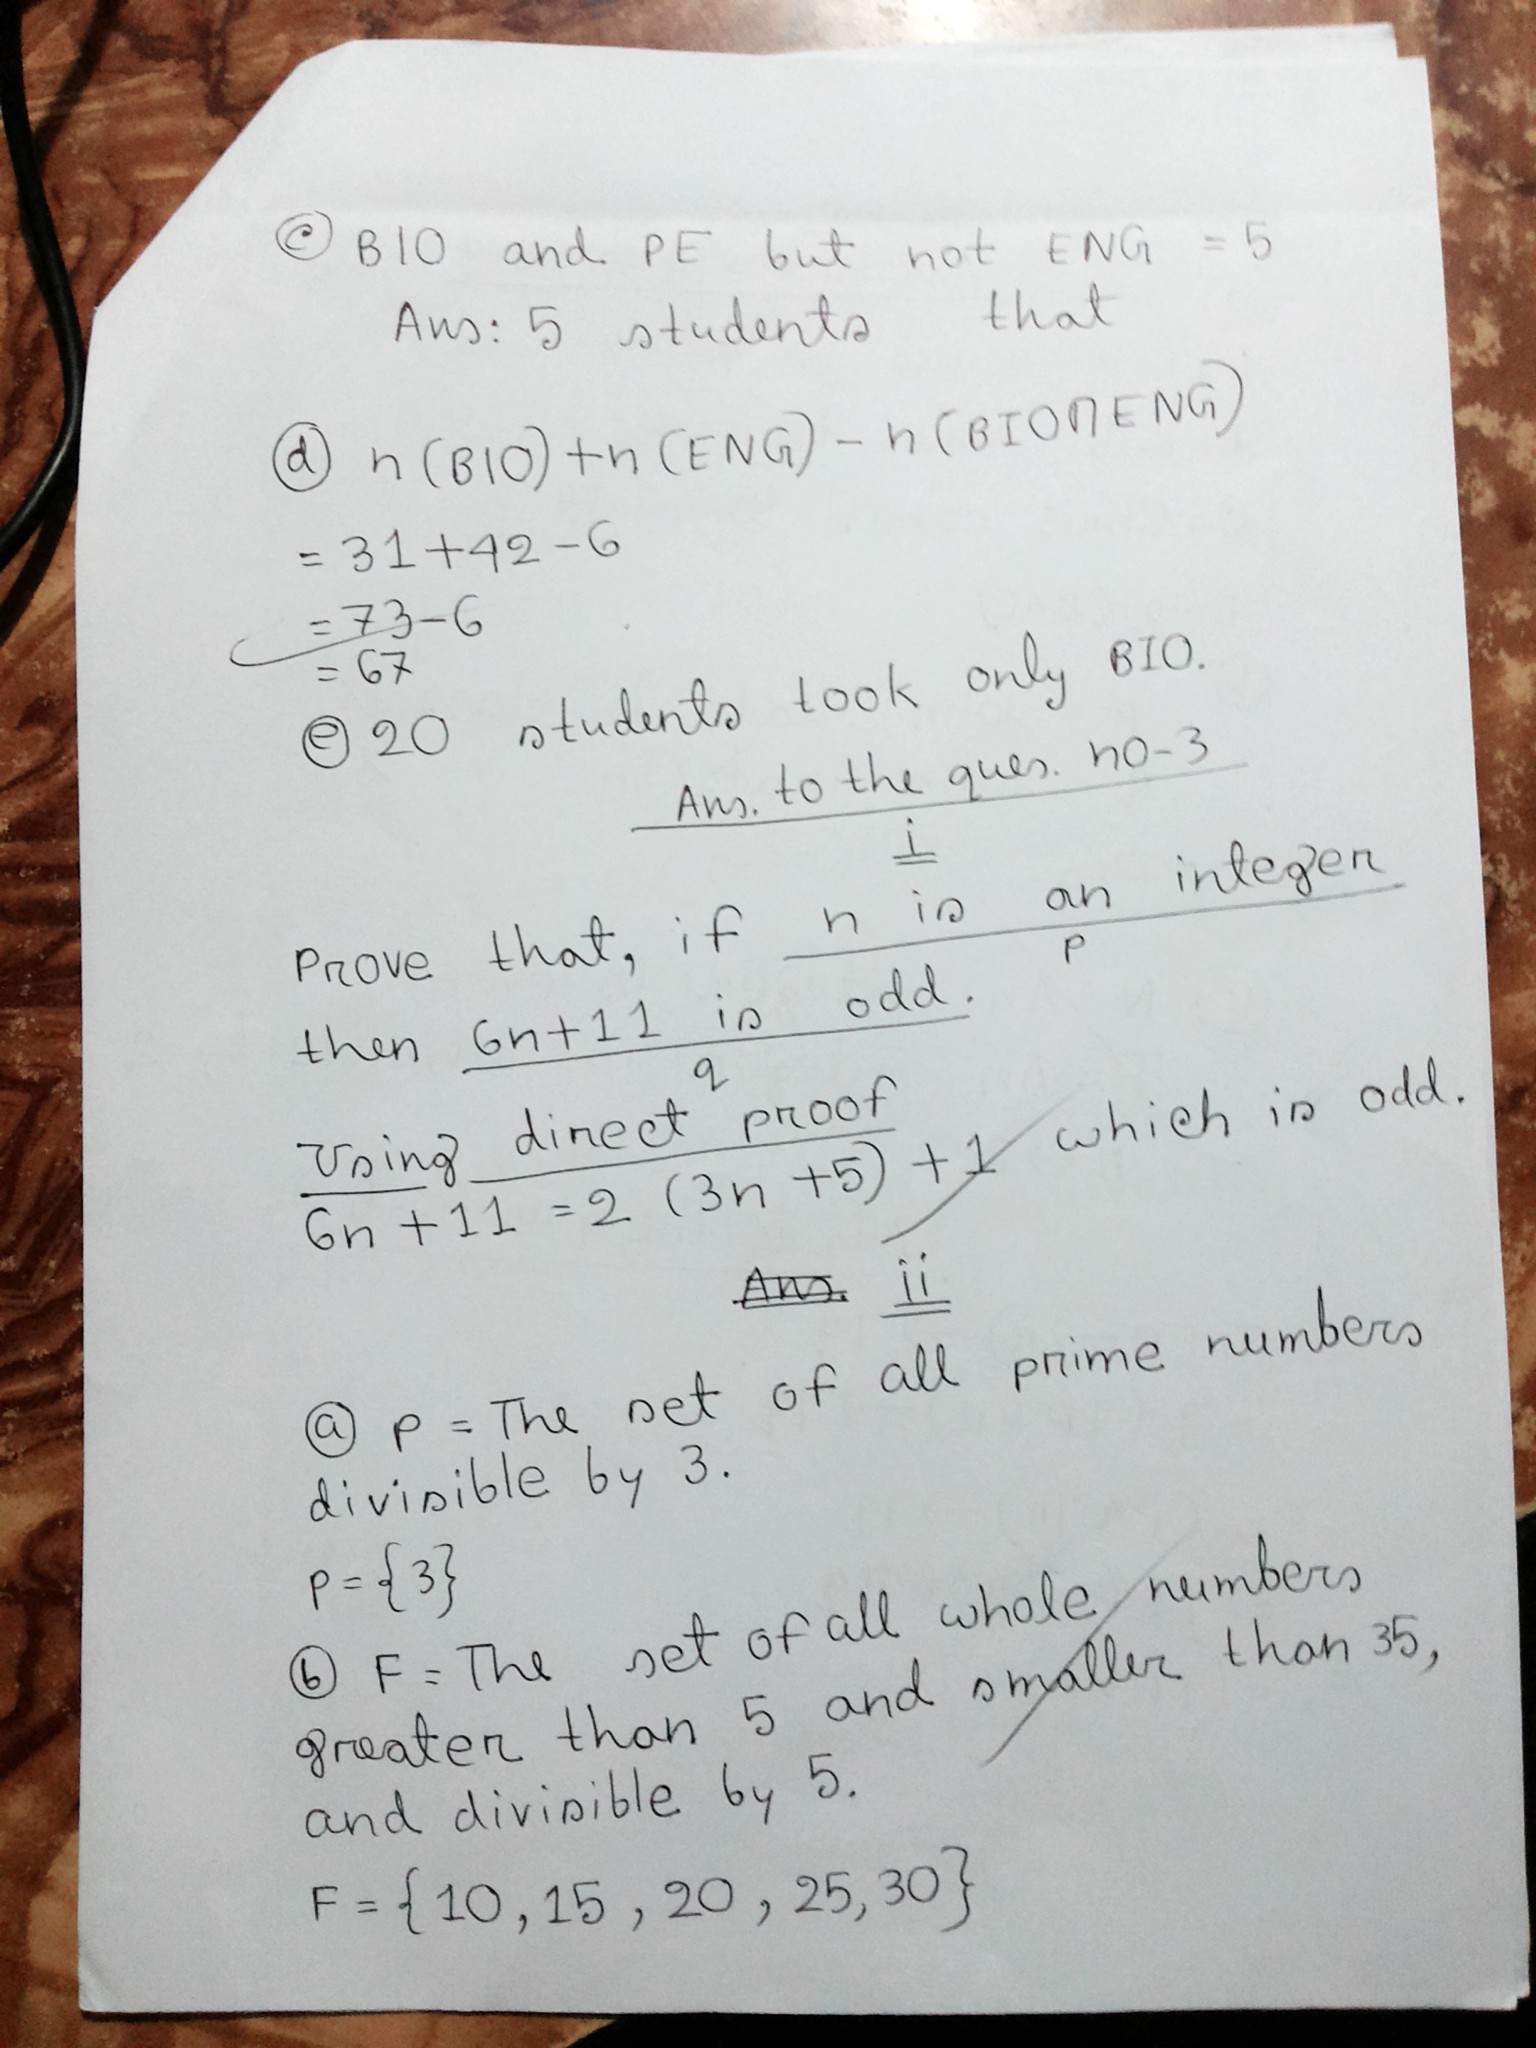 ⓒ BIO and PE but not ENG = 5
Ans: 5 students that
ⓓ n(BIO)+n(ENG)-n(BIO∩ENG)
= 31+42-6
= 73-6
= 67
ⓔ 20 students took only BIO.
Ans. to the ques. no-3
i
Prove that, if n is an integer
p
then 6n+11 is odd.
q
Using direct proof
6n+11 = 2 (3n+5)+1 which is odd.
Ans. ii
ⓐ P = The set of all prime numbers
divisible by 3.
P = {3}
ⓑ F = The set of all whole numbers
greater than 5 and smaller than 35,
and divisible by 5.
F = {10, 15, 20, 25, 30}